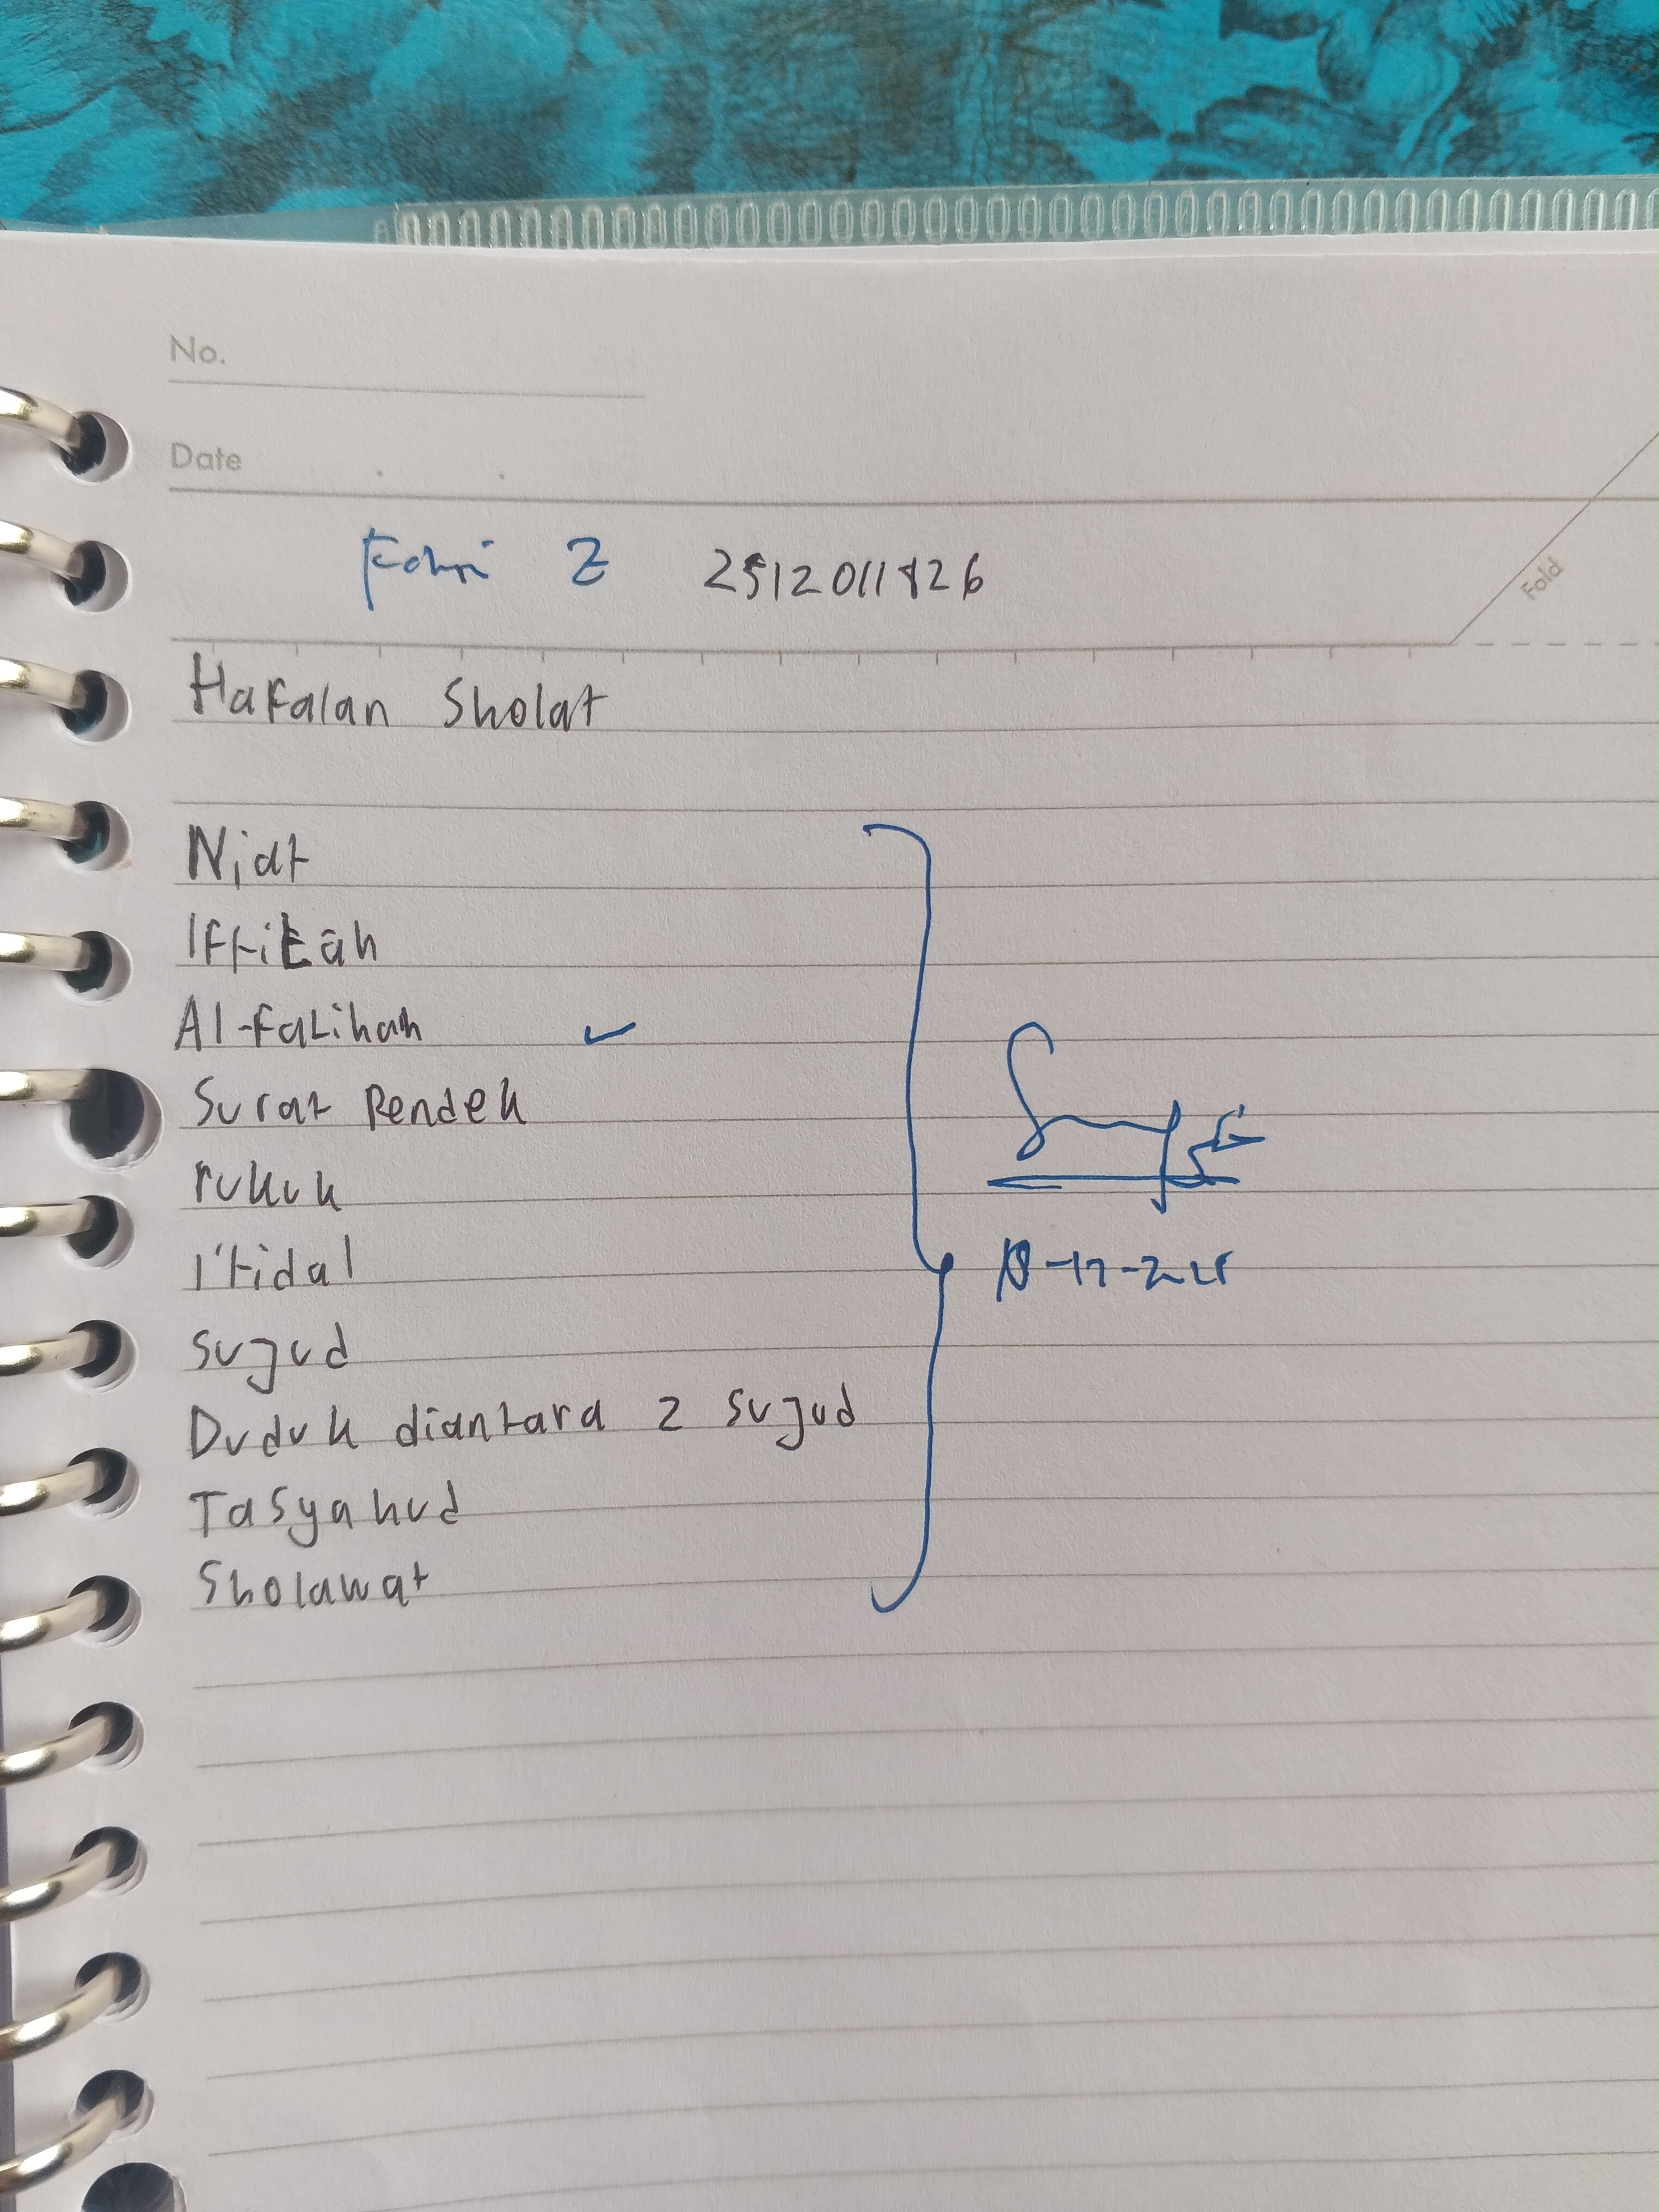 No.
Date
Fahri Z 2512011826
Fold
Hafalan Sholat
Niat
Iftitah
Al-Fatihah
Surat Pendek
rukuk
I'tidal
sujud
Duduk diantara 2 sujud
Tasyahud
Sholawat